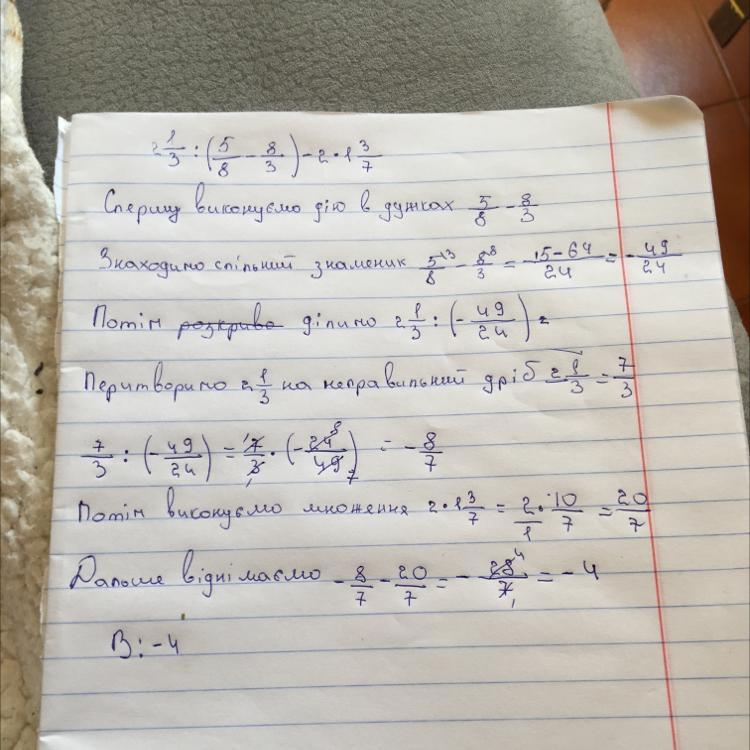 2 1/3 : (5/8 - 8/3) - 2 · 1 3/7
Спершу виконуємо дію в дужках 5/8 - 8/3
Знаходимо спільний знаменик 5^13/8 - 8^8/3 = 15-64/24 = - 49/24
Потім розкрива ділимо 2 1/3 : (- 49/24) =
Перитворимо 2 1/3 на неправильний дріб 2 1/3 = 7/3
7/3 : (- 49/24) = 7/3 · (- 24/49) = - 8/7
Потім виконуємо множення 2 · 1 3/7 = 2/1 · 10/7 = 20/7
Дальше віднімаємо - 8/7 - 20/7 = - 28/7 = - 4
В: -4